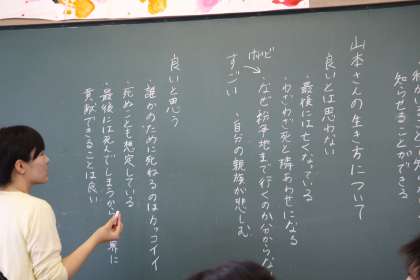 知らせることができ
山本さんの生き方について
良いとは思わない
・最後には亡くなっている
・わざわざ死と隣あわせになる
・なぜ紛争地まで行くのか分からな
・自分の親族が悲しむ
すごい
良いと思う
・誰かのために死ねるのはカッコイイ
・死ぬことも想定している
・最後には死んでしまうが 界に
貢献できることは良い